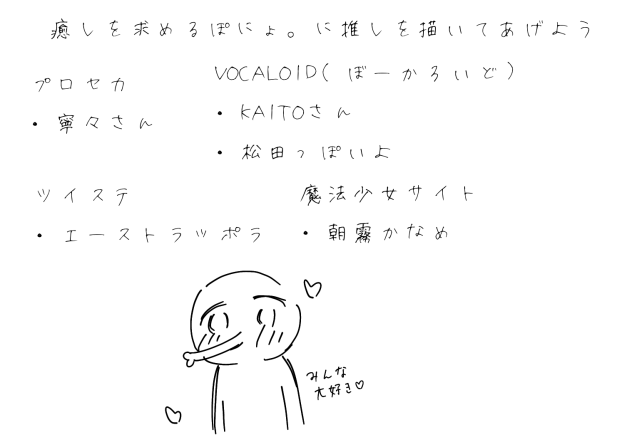 癒しを求めるぽにょ。に推しを描いてあげよう
プロセカ
・寧々さん
VOCALOID(ぼーかろいど)
・KAITOさん
・松田っぽいよ
ツイステ
・エーストラッポラ
魔法少女サイト
・朝霧かなめ
みんな
大好き♡